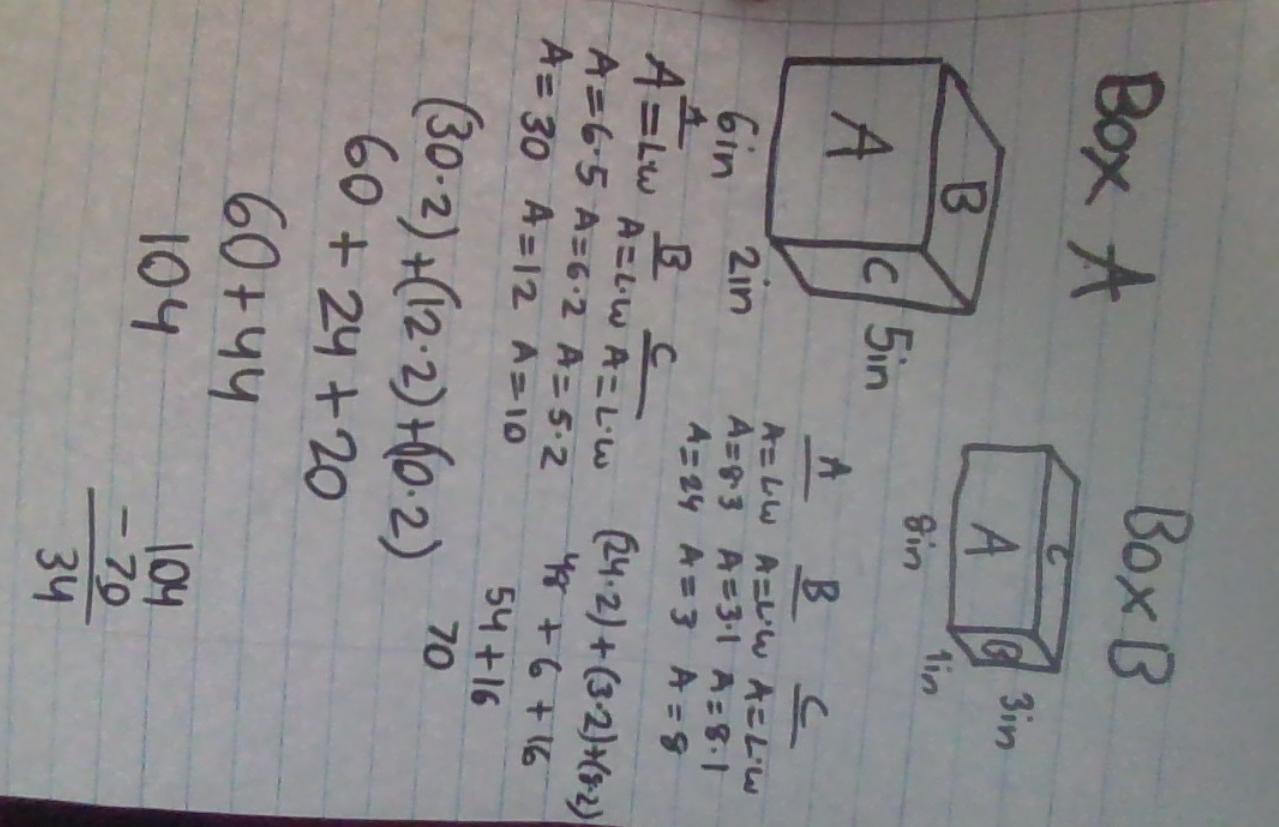 Box A
B
A
C
5in
6in
2in
A
B
C
A=L·w A=L·w A=L·w
A=6·5 A=6·2 A=5·2
A=30 A=12 A=10
(30·2)+(12·2)+(10·2)
60 + 24 + 20
60+44
104
Box B
C
A
B
3in
8in
1in
A
B
C
A=L·w A=L·w A=L·w
A=8·3 A=3·1 A=8·1
A=24 A=3 A=8
(24·2)+(3·2)+(8·2)
48 + 6 + 16
54+16
70
104
-70
34